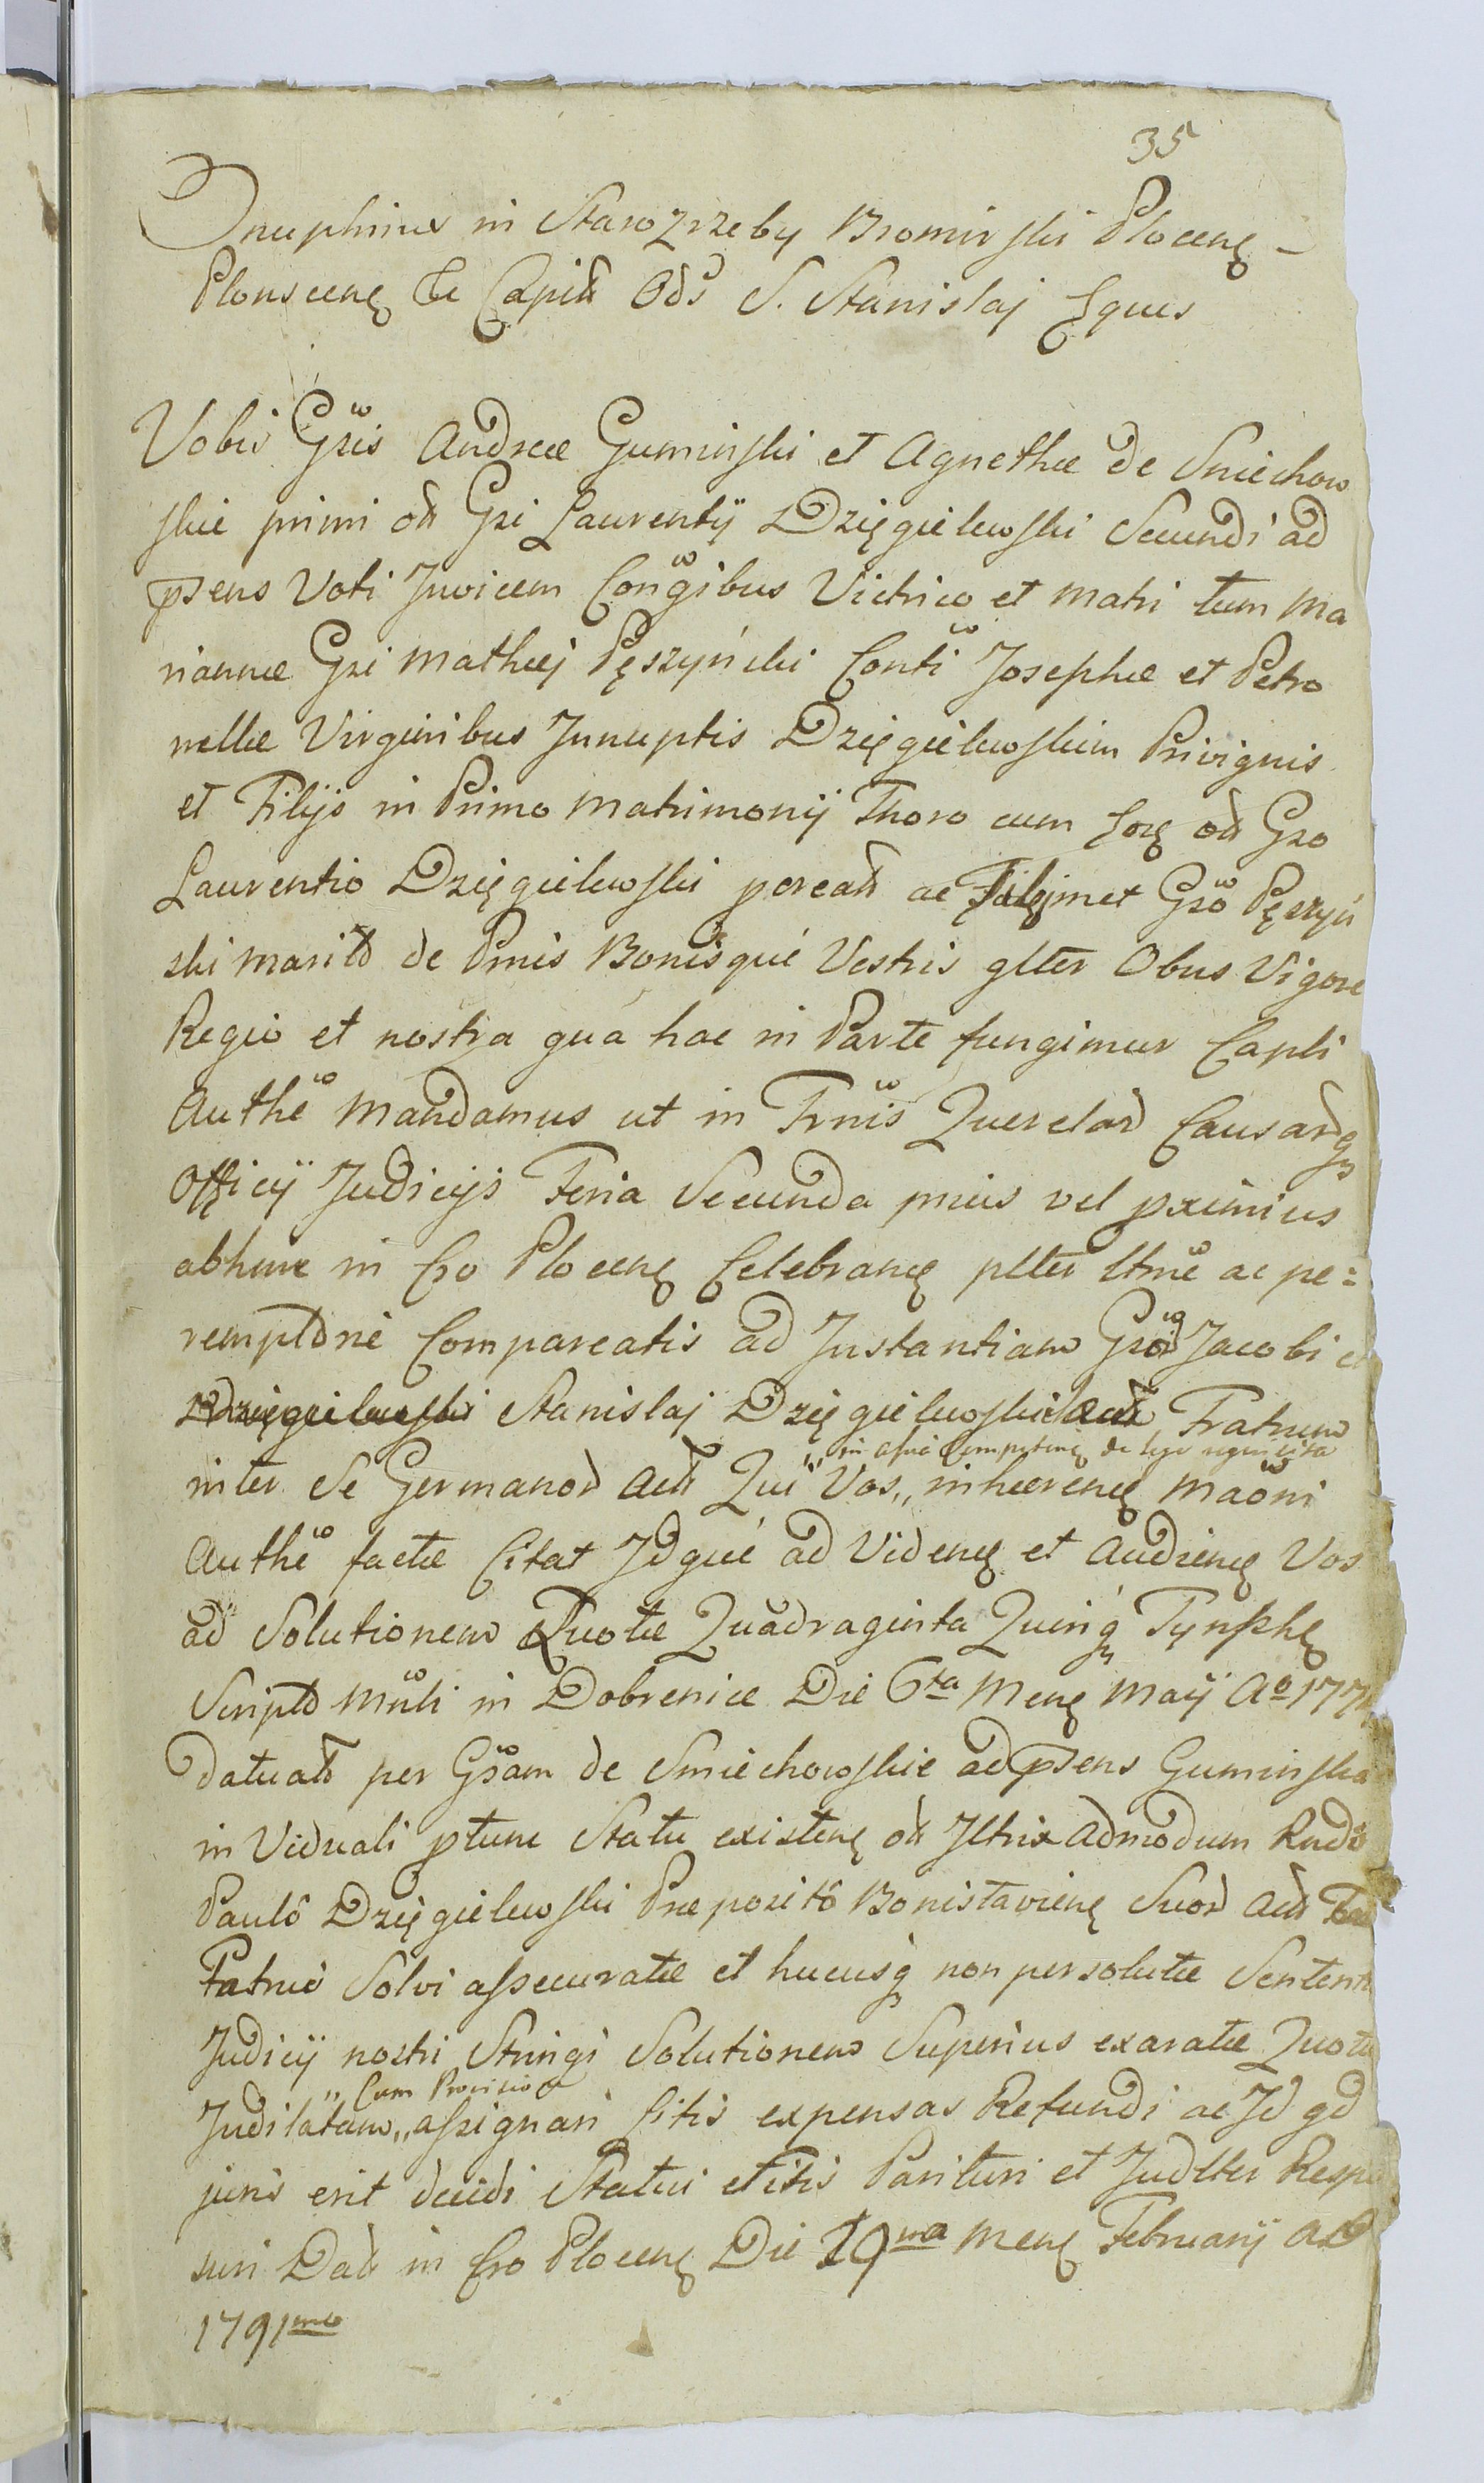 35
Onuphrius in Starozrzeby Bromirski Plocens̨ -
Plonscens̨ Tc Capit Ods S. Stanislaj Eques
Vobis Gsis Andreæ Guminski et Agnethæ de Smiechow
skie primi ott Gsi Laurentij Dzięgielewski Secundi ad
psens Voti Invicem Congibus Vitrico et Matri tum Ma
riannæ Gsi Mathæj Pęszyński Conti Josephæ et Petro
nellæ Virginibus Innuptis Dzięgielewskim Privignis
et Filijs in Primo Matrimonij Thoro cum ott Gso
Laurentio Dzięgielewski pcreatt ac Gso Pęszyń
ski marito de Psnis Bonisque Vestris glter Obus Vigore
Regio et nostra qua hac in Parte fungimur Capli
Authe Mandamus ut in Frnis Querelar Causarq
Officij Judicijs Feria Secunda prius vel pximius
abhinc in Cro Plocens̨ Celebrans̨ plter ltme ac pe=
remptorie Compareatis ad Instantiam Gsor Jacobi et
Dzięgielewski Stanislaj Dzięgielewskich Fratrum
in Competens̨ de lege
inter Se Germanor Actt Qui Vos,, inhærens̨ Maoni
Authe factæ Citat Idque ad Videns̨ et Audiens̨ Vos
ad Solutionem Quotæ Quadraginta Quinq Tynph
Scripto Mnli in Dobrenice Die 6ta Mens̨ Maij Ao 177
Datuatt per Gsam de Smiechowskie adpsens Guminska
in Viduali ptunc Statu existens̨ ott Iltri Admodum Rndo
Paulô Dzięgielewski Præpositô Bonislaviens̨ Suor Actt
Patruo Solvi assecuratæ et hucusq non persolutæ Sentent
Judicij nostri Stringi Solutionem Superius exaratæ Quotæ
,, Cum Provisio
Judilatam,, assignari Litis expensas Refundi ac Id qd
juris erit decidi Statui etitis Parituri et Judlter Respon
suri Datt in Cro Plocens̨ Die 19na Mens̨ Februarij AD
1791mo